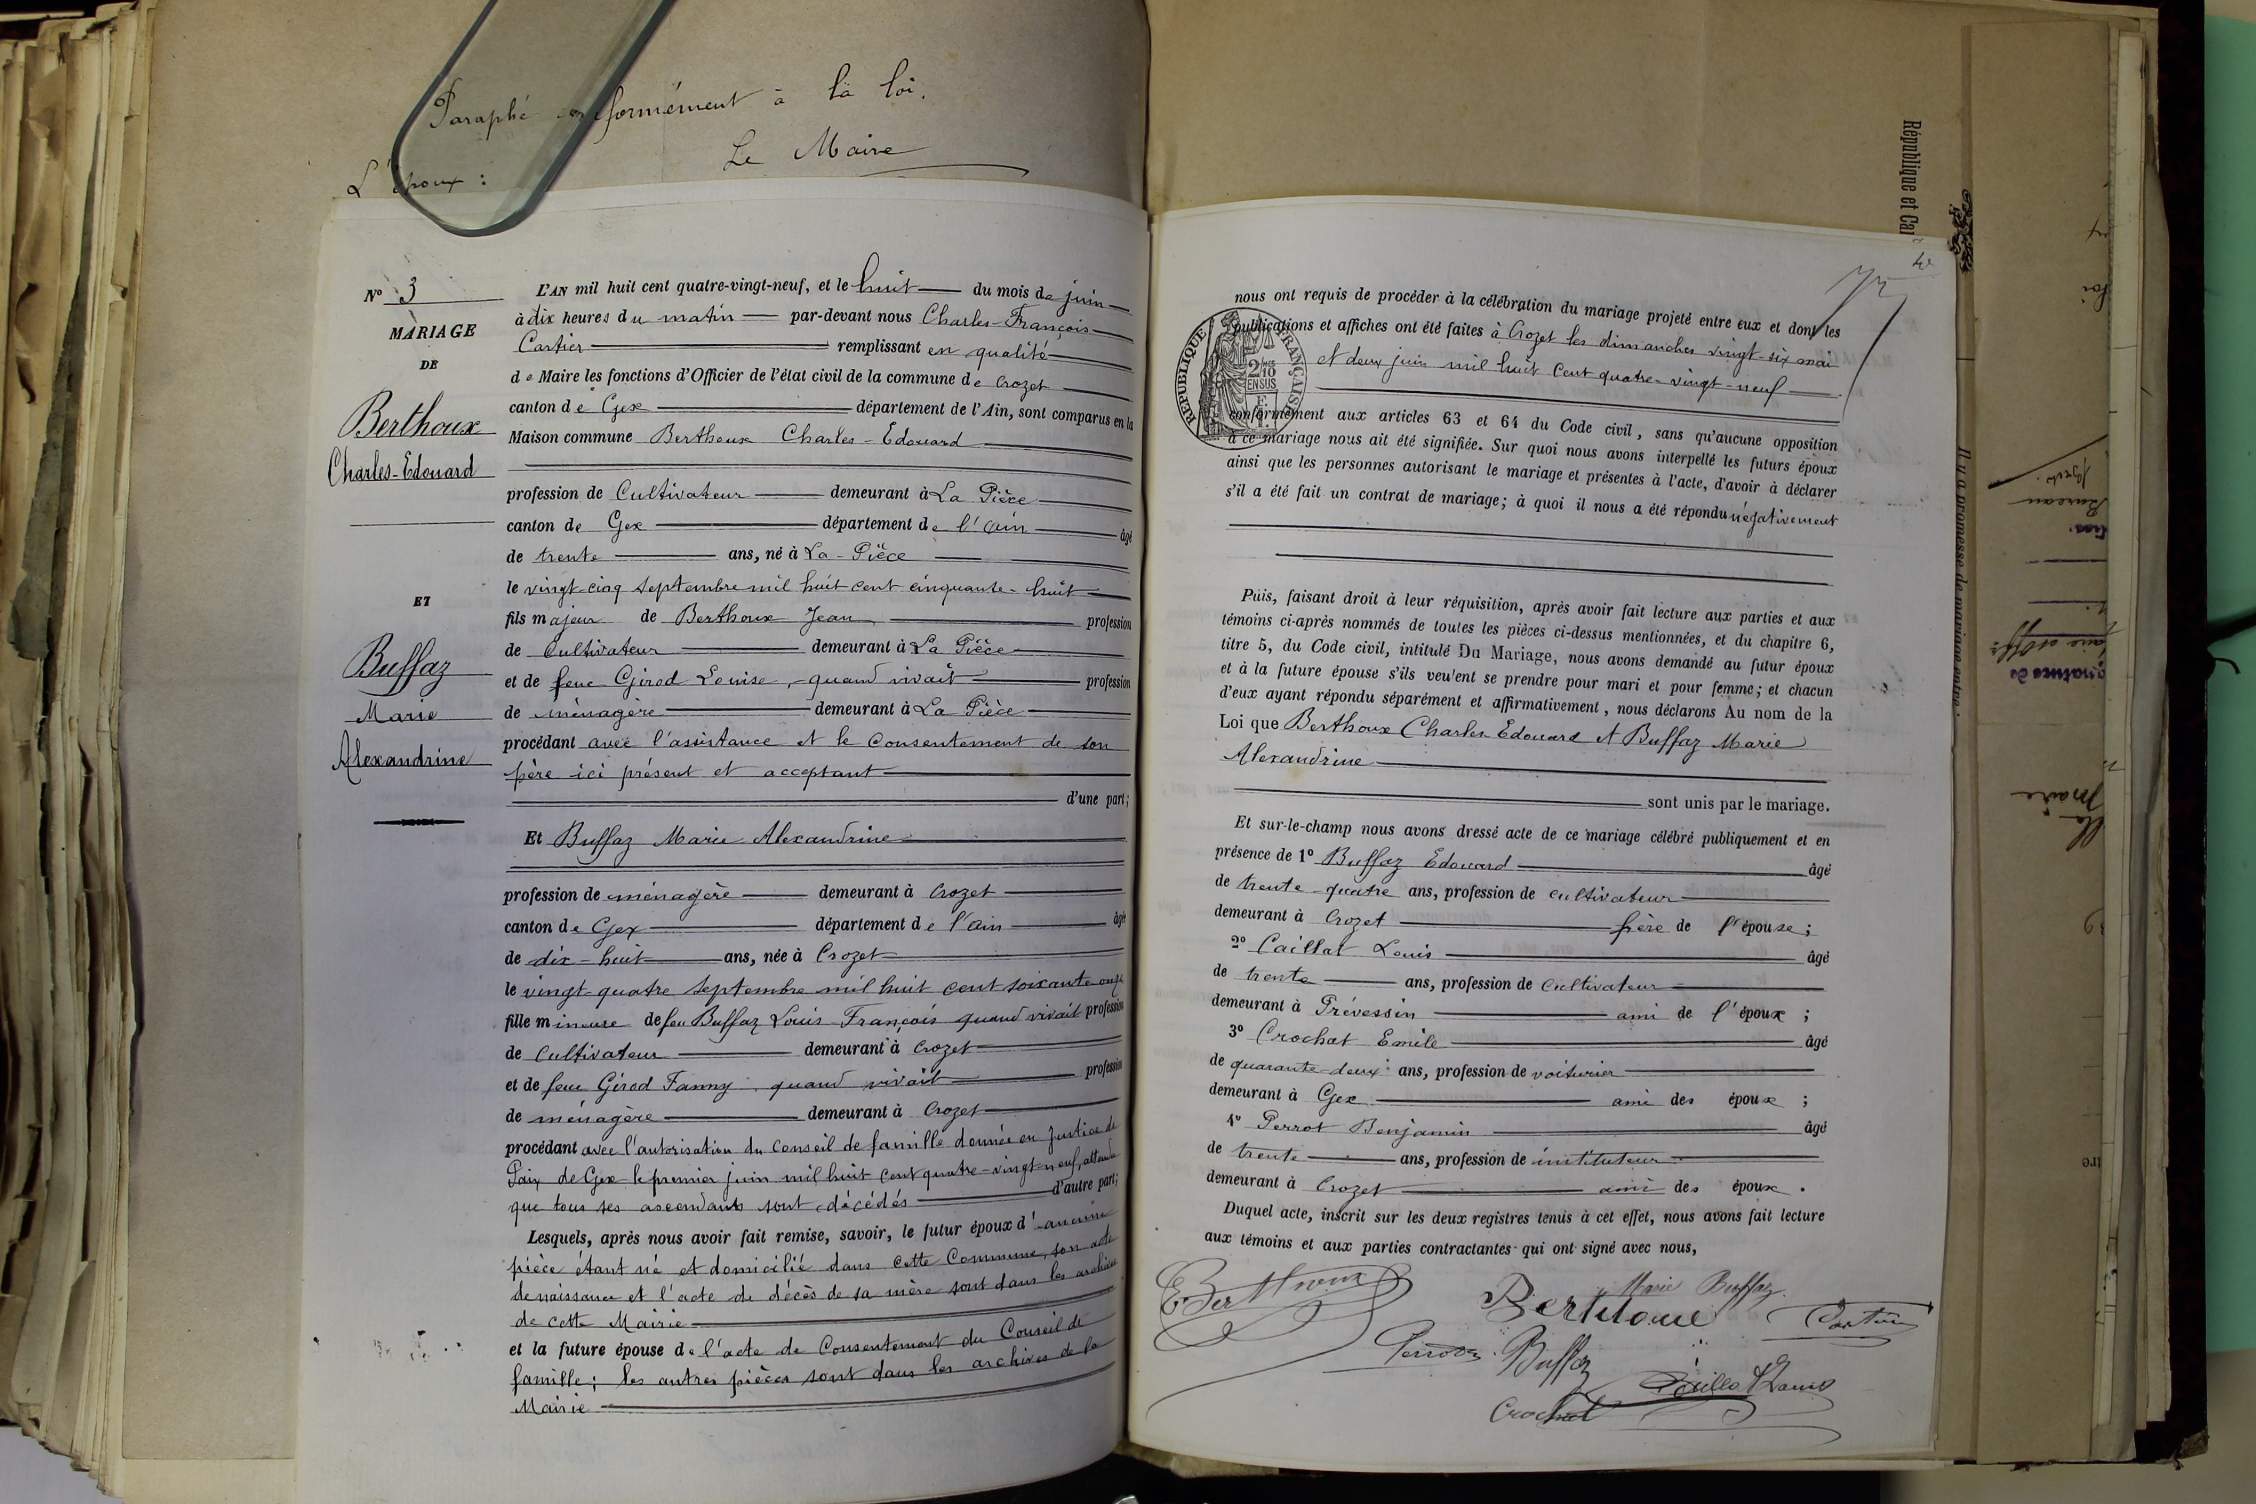 Paraphé conformément à la loi.
Le Maire
L'époux :
N° 3
MARIAGE
DE
Berthoux
Charles-Edouard
ET
Buffaz
Marie
Alexandrine
L'AN mil huit cent quatre-vingt-neuf, et le huit du mois de juin
à dix heures du matin par-devant nous Charles-François
Cartier remplissant en qualité
de Maire les fonctions d'Officier de l'état civil de la commune de Crozet
canton de Gex département de l'Ain, sont comparus en la
Maison commune Berthoux Charles-Edouard
profession de Cultivateur demeurant à La Pièce
canton de Gex département de l'ain âgé
de trente ans, né à La-Pièce
le vingt-cinq septembre mil huit cent cinquante-huit
fils majeur de Berthoux Jean profession
de Cultivateur demeurant à La Pièce
et de feue Girod Louise, quand vivait profession
de ménagère demeurant à La Pièce
procédant avec l'assistance et le consentement de son
père ici présent et acceptant
d'une part;
Et Buffaz Marie Alexandrine
profession de ménagère demeurant à Crozet
canton de Gex département de l'ain âgée
de dix-huit ans, née à Crozet
le vingt-quatre septembre mil huit cent soixante onze
fille mineure de feu Buffaz Louis François quand vivait profession
de Cultivateur demeurant à Crozet
et de feue Girod Fanny quand vivait profession
de ménagère demeurant à Crozet
procédant avec l'autorisation du Conseil de famille donnée en Justice de
Paix de Gex le premier juin mil huit cent quatre-vingt-neuf, attendu
que tous ses ascendants sont décédés d'autre part;
Lesquels, après nous avoir fait remise, savoir, le futur époux d'aucune
pièce étant né et domicilié dans cette Commune, son acte
de naissance et l'acte de décès de sa mère sont dans les archives
de cette Mairie
et la future épouse de l'acte de Consentement du Conseil de
famille; les autres pièces sont dans les archives de la
Mairie
nous ont requis de procéder à la célébration du mariage projeté entre eux et dont les
publications et affiches ont été faites à Crozet les dimanches vingt-six mai
et deux juin mil huit cent quatre-vingt-neuf
RÉPUBLIQUE FRANÇAISE
2/10 EN SUS
conformément aux articles 63 et 64 du Code civil, sans qu'aucune opposition
à ce mariage nous ait été signifiée. Sur quoi nous avons interpellé les futurs époux
ainsi que les personnes autorisant le mariage et présentes à l'acte, d'avoir à déclarer
s'il a été fait un contrat de mariage; à quoi il nous a été répondu négativement
Puis, faisant droit à leur réquisition, après avoir fait lecture aux parties et aux
témoins ci-après nommés de toutes les pièces ci-dessus mentionnées, et du chapitre 6,
titre 5, du Code civil, intitulé Du Mariage, nous avons demandé au futur époux
et à la future épouse s'ils veulent se prendre pour mari et pour femme; et chacun
d'eux ayant répondu séparément et affirmativement, nous déclarons Au nom de la
Loi que Berthoux Charles Edouard et Buffaz Marie
Alexandrine
sont unis par le mariage.
Et sur-le-champ nous avons dressé acte de ce mariage célébré publiquement et en
présence de 1° Buffaz Edouard âgé
de trente-quatre ans, profession de cultivateur
demeurant à Crozet frère de l'épouse;
2° Caillat Louis âgé
de trente ans, profession de cultivateur
demeurant à Prévessin ami de l'époux;
3° Crochat Emile âgé
de quarante-deux ans, profession de voiturier
demeurant à Gex ami des époux;
4° Perrot Benjamin âgé
de trente ans, profession de instituteur
demeurant à Crozet ami des époux.
Duquel acte, inscrit sur les deux registres tenus à cet effet, nous avons fait lecture
aux témoins et aux parties contractantes qui ont signé avec nous,
E. Berthoux
Marie Buffaz
Berthoux
Cartier
Perrot
Buffaz
Caillat Louis
Crochat
République et Ca
Il y a promesse de mariage entre :
Bureau
Maire